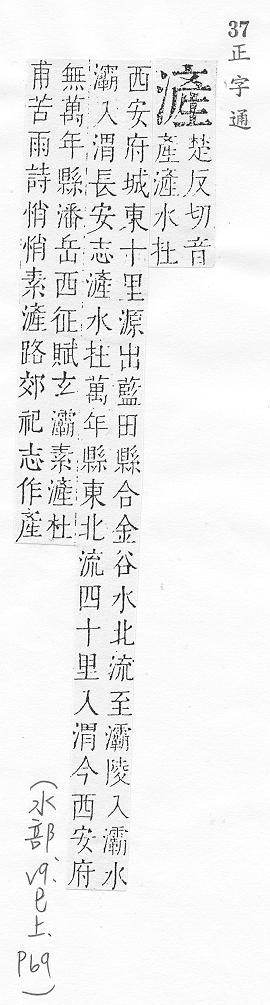 37
正字通
滻
楚反切音
產滻水在
西安府城東十里源出藍田縣合金谷水北流至灞陵入灞水
灞入渭長安志滻水在萬年縣東北流四十里入渭今西安府
無萬年縣潘岳西征賦玄灞素滻杜
甫苦雨詩悄悄素滻路郊祀志作產
(水部 巳上. P69)